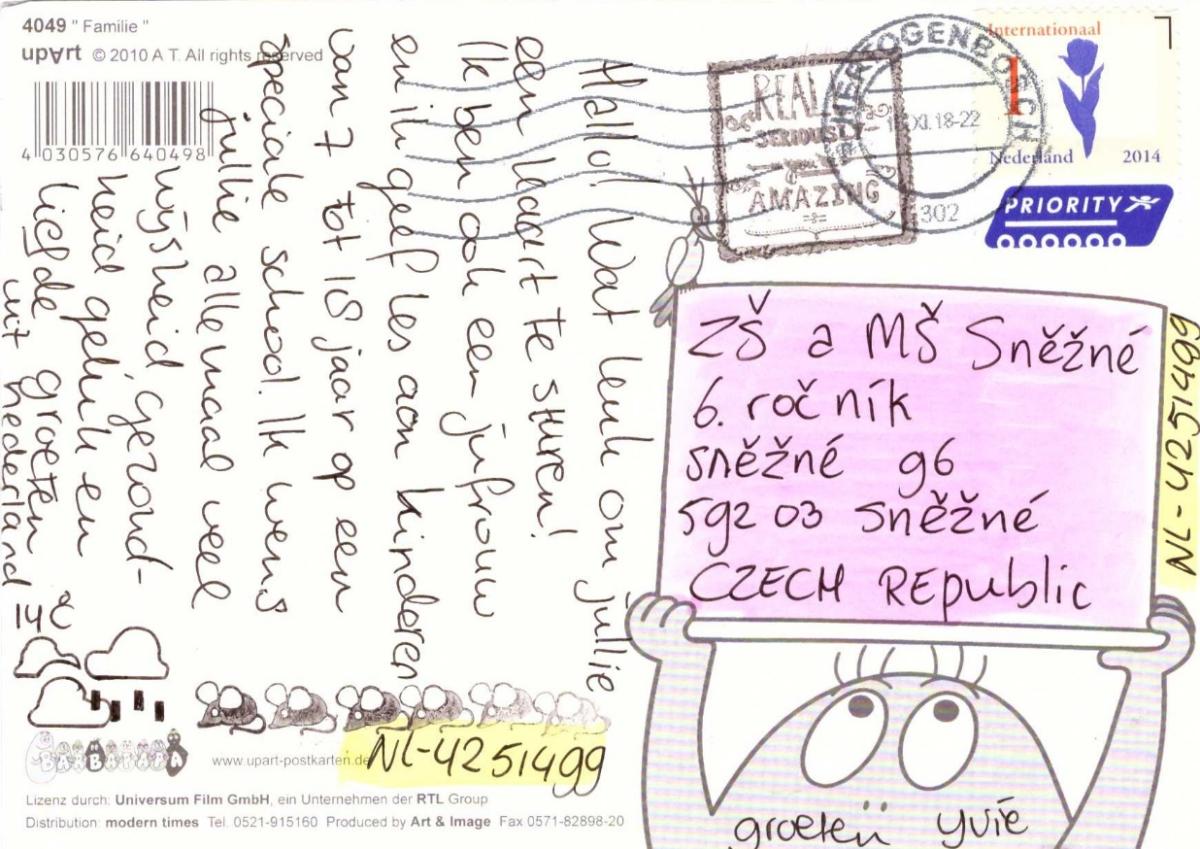 4049 " Familie "
upArt © 2010 A T. All rights reserved
4 030576 640498
Hallo! Wat leuk om jullie
een kaart te sturen!
Ik ben ook een jufrouw
en ik geef les aan kinderen
van 7 tot 18 jaar op een
speciale school. Ik wens
jullie allemaal veel
wijsheid gezond-
heid geluk en
liefde groeten
uit nederland
14°C
REALLY
SERIOUSLY
AMAZING
'S-HERTOGENBOSCH
XI.18-22
302
Internationaal
1
Nederland 2014
PRIORITY
ZŠ a MŠ Sněžné
6. ročník
sněžné 96
592 03 sněžné
CZECH REpublic
NL-4251499
BARBAPAPA
www.upart-postkarten.de
NL-4251499
Lizenz durch: Universum Film GmbH, ein Unternehmen der RTL Group
Distribution: modern times Tel. 0521-915160 Produced by Art & Image Fax 0571-82898-20
groeten yvie